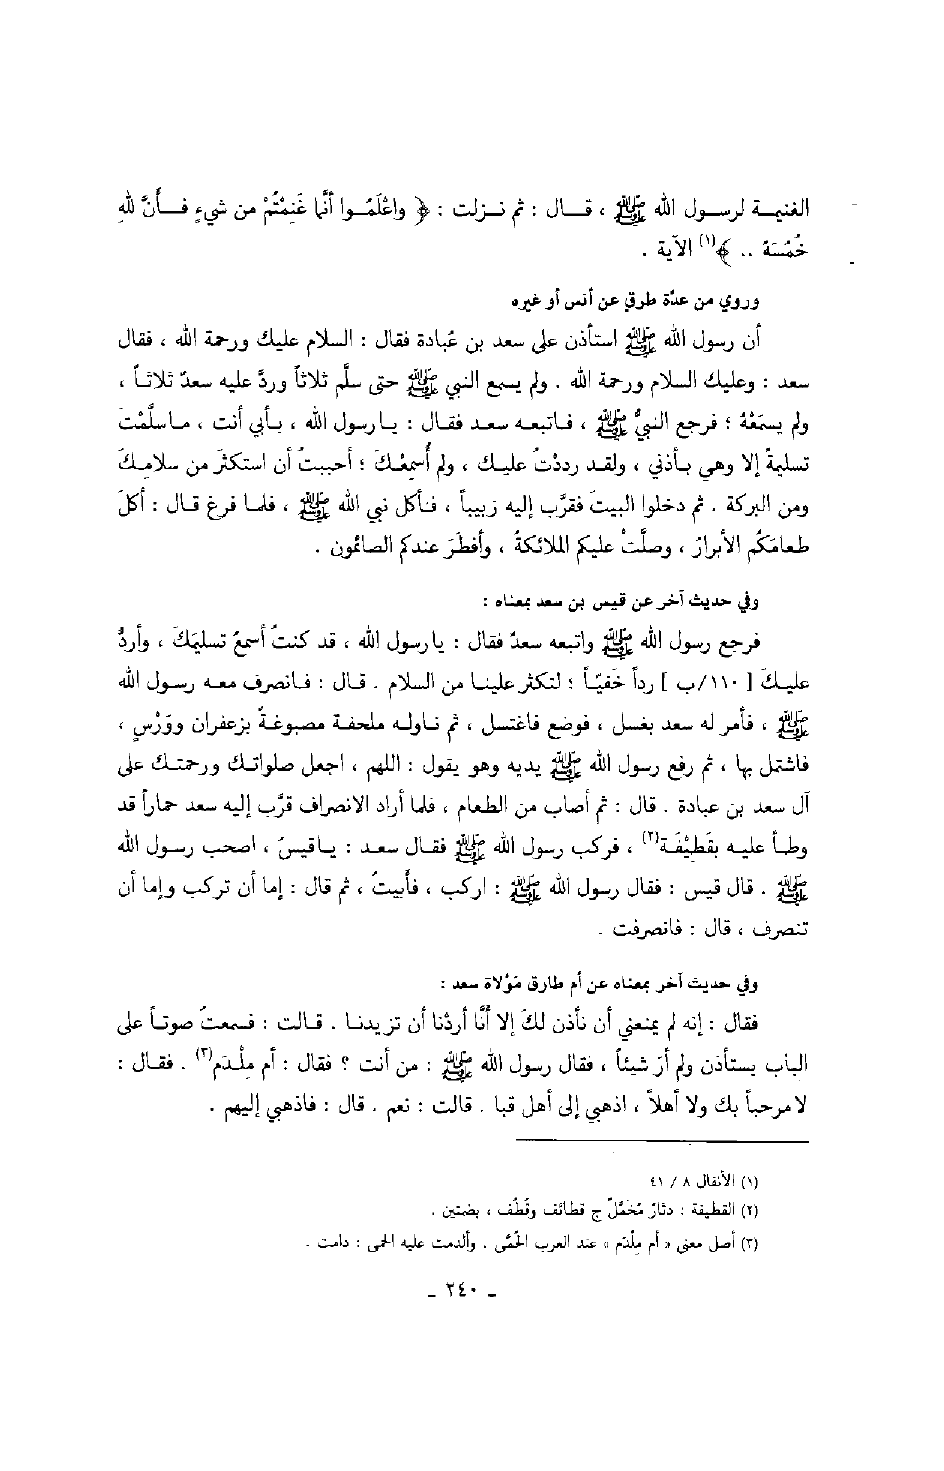 الغنيمـة لرسـول الله ﷺ ، قـال : ثم نـزلت : ﴿ واعْلَمُـوا أنَّما غَنِمْتُمْ من شيءٍ فـأنَّ للهِ
خُمُسَهُ .. ﴾(١) الآية .
وروي من عدّة طرقٍ عن أنس أو غيره
أن رسول الله ﷺ استأذن على سعد بن عُبادة فقال : السلام عليك ورحمة الله ، فقال
سعد : وعليك السلام ورحمة الله . ولم يسمع النبي ﷺ حتى سلَّم ثلاثاً وردَّ عليه سعدٌ ثلاثاً ،
ولم يسمَعْهُ ؛ فرجع النبيُّ ﷺ ، فاتبعه سعد فقال : يا رسول الله ، بأبي أنت ، ما سلَّمْتَ
تسليمةً إلا وهي بأذني ، ولقد رددْتُ عليك ، ولم أُسمِعْكَ ؛ أحببتُ أن استكثرَ من سلامِكَ
ومن البركة . ثم دخلوا البيتَ فقرَّب إليه زبيباً ، فأكل نبي الله ﷺ ، فلما فرغ قال : أكلَ
طعامَكُم الأبرارُ ، وصلَّتْ عليكم الملائكةُ ، وأفطَرَ عندكم الصائمون .
وفي حديث آخر عن قيس بن سعد بمعناه :
فرجع رسول الله ﷺ واتبعه سعدٌ فقال : يا رسول الله ، قد كنتُ أسمعُ تسليمَكَ ، وأردُّ
عليكَ [ ١١٠/ب ] رداً خَفيّاً ؛ لتكثر علينا من السلام . قال : فانصرف معه رسول الله
ﷺ ، فأمر له سعد بغسل ، فوضع فاغتسل ، ثم ناوله ملحفة مصبوغةً بزعفران ووَرْسٍ ،
فاشتمل بها ، ثم رفع رسول الله ﷺ يديه وهو يقول : اللهم ، اجعل صلواتك ورحمتك على
آل سعد بن عبادة . قال : ثم أصاب من الطعام ، فلما أراد الانصراف قرَّب إليه سعد حماراً قد
وطأ عليه بقَطيْفَة(٢) ، فركب رسول الله ﷺ فقال سعد : يا قيسُ ، اصحب رسول الله
ﷺ . قال قيس : فقال رسول الله ﷺ : اركب ، فأبيتُ ، ثم قال : إما أن تركب وإما أن
تنصرف ، قال : فانصرفت .
وفي حديث آخر بمعناه عن أم طارق مَوْلاة سعد :
فقال : إنه لم يمنعني أن نأذن لكَ إلا أنَّا أردْنا أن تزيدنا . قالت : فسمعتُ صوتاً على
الباب يستأذن ولم أرَ شيئاً ، فقال رسول الله ﷺ : من أنت ؟ فقال : أم مِلْدَم(٣) . فقال :
لا مرحباً بك ولا أهلاً ، اذهبي إلى أهل قبا . قالت : نعم . قال : فاذهبي إليهم .
(١) الأنفال ٨ / ٤١
(٢) القطيفة : دثارٌ مُخَمَّلٌ ج قطائف وقُطُف ، بضمتين .
(٣) أصل معنى « أم مِلْدَم » عند العرب الحُمَّى . وألدمت عليه الحمى : دامت .
- ٢٤٠ -